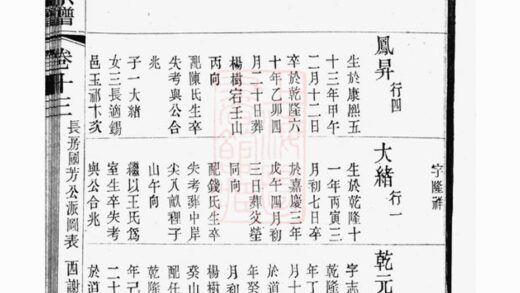 字隆祥
鳳昇 行四
生於康熙五
十三年甲午
二月十二日
卒於乾隆六
十年乙卯四
月二十日葬
楊樹宕壬山
丙向
配陳氏生卒
失考與公合
兆
子一大緒
女三長適錫
邑玉祁十次
大緒 行一
生於乾隆十
一年丙寅三
月初七日卒
於嘉慶三年
戊午四月初
三日葬文瑩
同向
配錢氏生卒
失考葬中岸
尖畝子
山午向
繼以王氏為
室生卒失考
與公合兆
乾元
字志
乾隆
年丁
月十
於道
年癸
月初
楊樹
癸山
配任
乾隆
年己
二十
於道
譜
卷十三
長房國芳公派圖表
酉謝